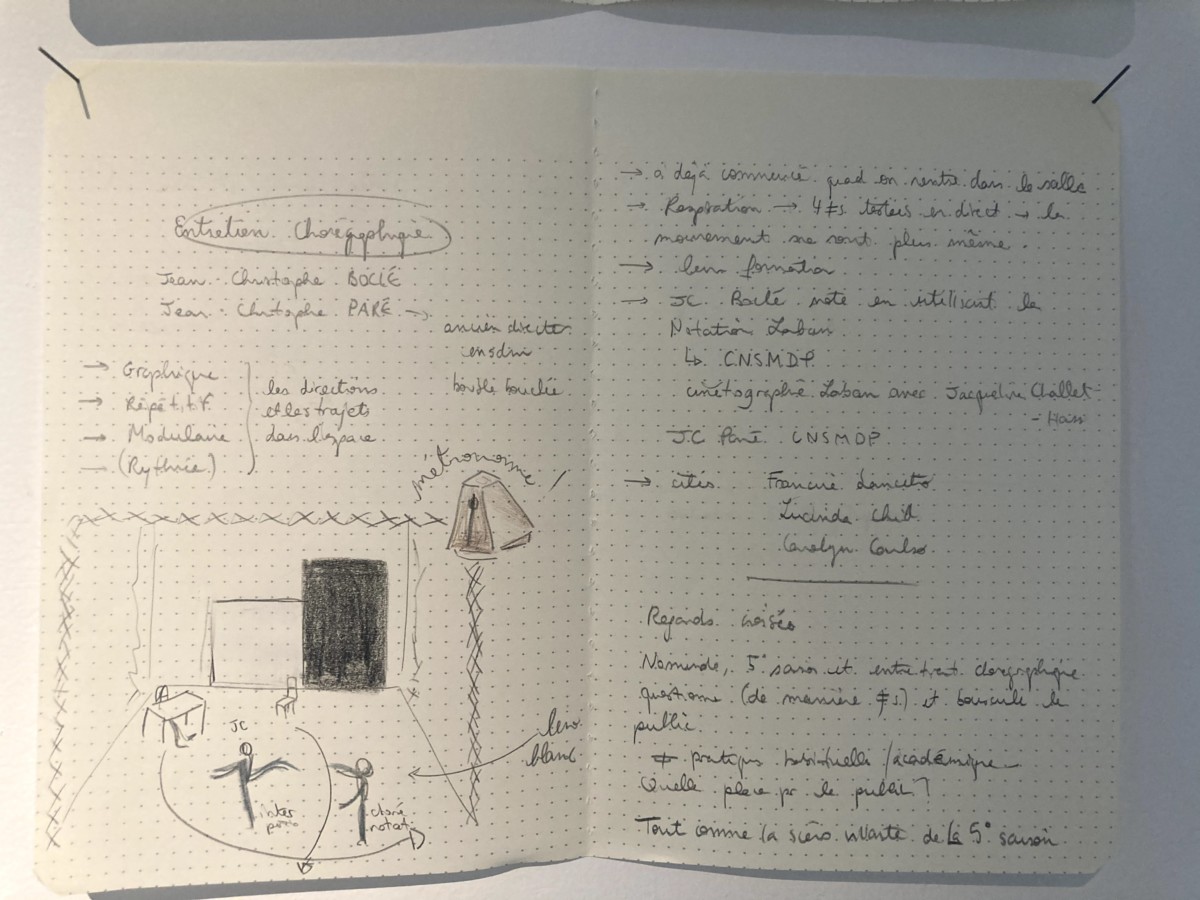 Entretien Chorégraphique
Jean-Christophe BOCLÉ
Jean-Christophe PARÉ →
ancien directeur
boucle bouclée
→ Graphique
→ Répétitif
→ Modulaire
→ (Rythmée)
les directions
et les trajets
dans l'espace
métronome
JC
lino
blanc
choré
notat
→ a déjà commencé quad on rentre dans la salle
→ Respiration → 4 ≠s testées en direct → le
mouvement ne sont plus même.
→ leur formation
→ JC Boclé note en utilisant la
Notation Laban
↳ CNSMDP
cinétographie Laban avec Jacqueline Challet
- Haas
JC Paré CNSMDP
→ cités Francine Lancelot
Lucinda Child
Carolyn Carlso
Regards croisés
5° saison et entretient chorégraphique
questionne (de manière ≠s) et bouscule le
public
≠ pratiques habituelle / académique
Quelle place pr le public?
Tout comme la de la 5° saison